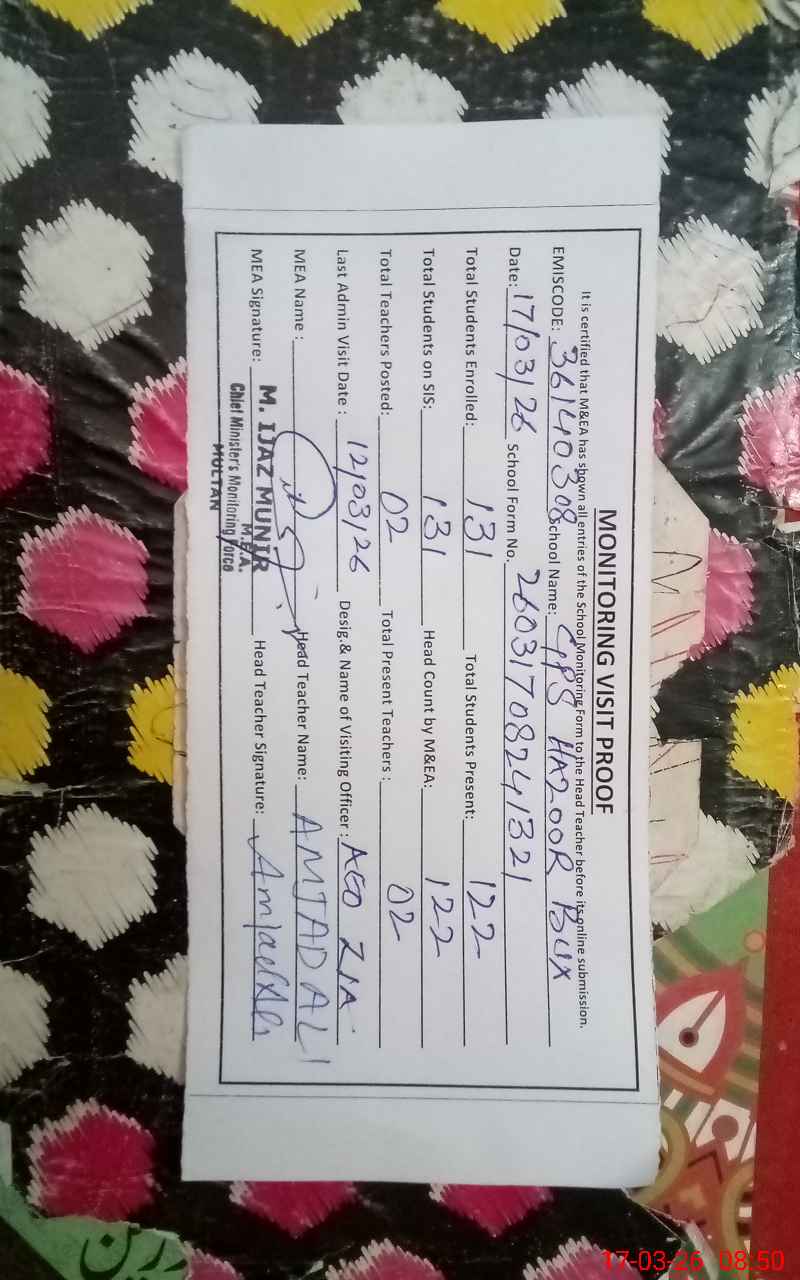 MONITORING VISIT PROOF
It is certified that M&EA has shown all entries of the School Monitoring Form to the Head Teacher before its online submission.
EMISCODE: 36140308 School Name: GPS HAZOOR BUX
Date: 17/03/26 School Form No. 26031708241321
Total Students Enrolled: 131 Total Students Present: 122
Total Students on SIS: 131 Head Count by M&EA: 122
Total Teachers Posted: 02 Total Present Teachers : 02
Last Admin Visit Date : 12/03/26 Desig.& Name of Visiting Officer : AEO ZIA
MEA Name : Head Teacher Name: AMJAD ALI
MEA Signature: Head Teacher Signature: Amjad Ali
M. IJAZ MUNIR
M.E.A.
Chief Minister's Monitoring Force
MULTAN
زرین
17-03-26 08:50